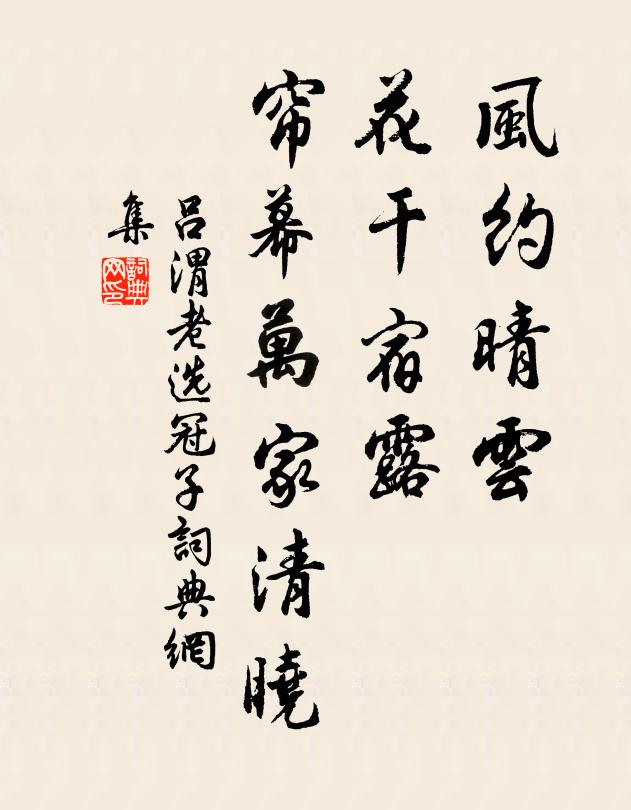 風約晴雲
花干宿露
帘幕萬家清曉
呂渭老选冠子詞典網
集
詞典網印